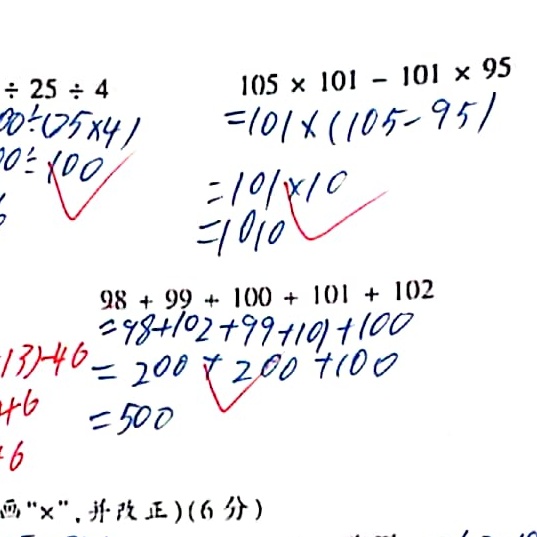 ÷ 25 ÷ 4
00÷(25×4)
00÷100
6
105 × 101 − 101 × 95
=101×(105-95)
=101×10
=1010
98 + 99 + 100 + 101 + 102
=98+102+99+101+100
=200+200+100
=500
13)-46
+6
6
画"×",并改正)(6 分)